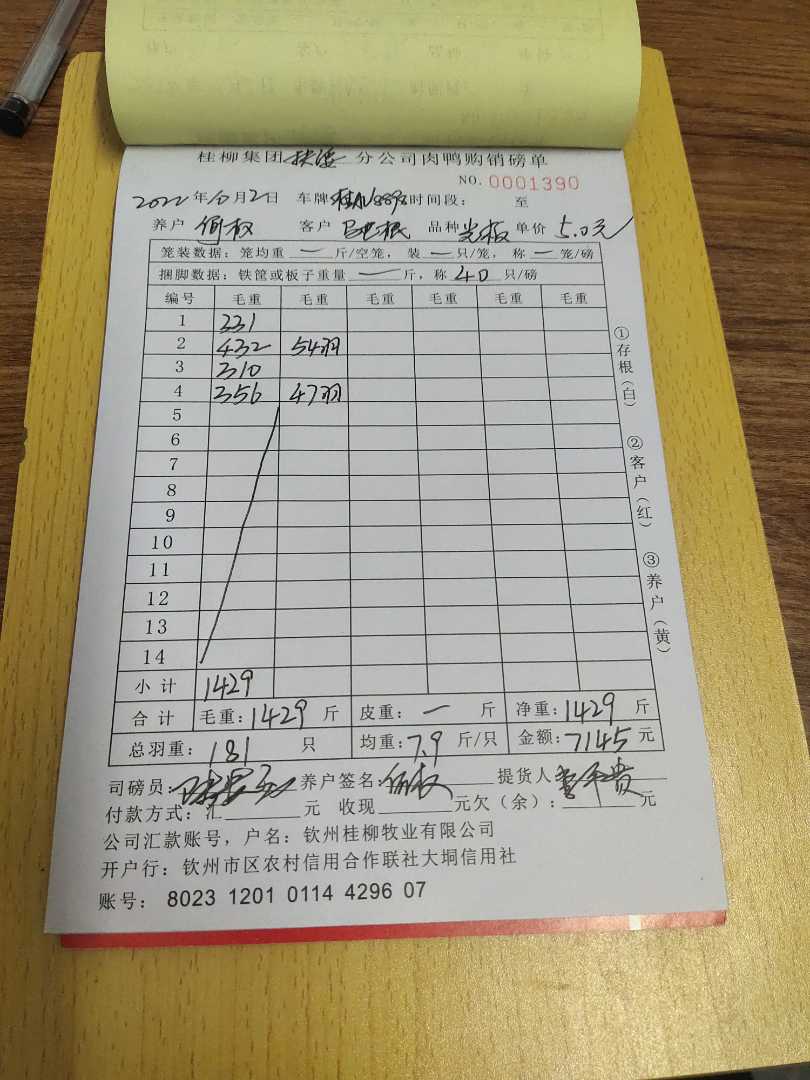 桂柳集团 分公司肉鸭购销磅单
NO. 0001390
2022年10月2日 车牌 时间段： 至
养户 何权 客户 品种 光板 单价 5.0元
笼装数据：笼均重 一 斤/空笼，装 一 只/笼，称 一 笼/磅
捆脚数据：铁筐或板子重量 一 斤，称 40 只/磅
编号 毛重 毛重 毛重 毛重 毛重 毛重
1 331
2 432 54羽
3 310
4 356 47羽
5
6
7
8
9
10
11
12
13
14
小计 1429
合计 毛重：1429 斤 皮重：一 斤 净重：1429 斤
总羽重：181 只 均重：7.9 斤/只 金额：7145 元
司磅员： 养户签名：何权 提货人
付款方式：汇 元 收现 元欠（余）： 元
公司汇款账号，户名：钦州桂柳牧业有限公司
开户行：钦州市区农村信用合作联社大垌信用社
账号：8023 1201 0114 4296 07
①存根（白）
②客户（红）
③养户（黄）